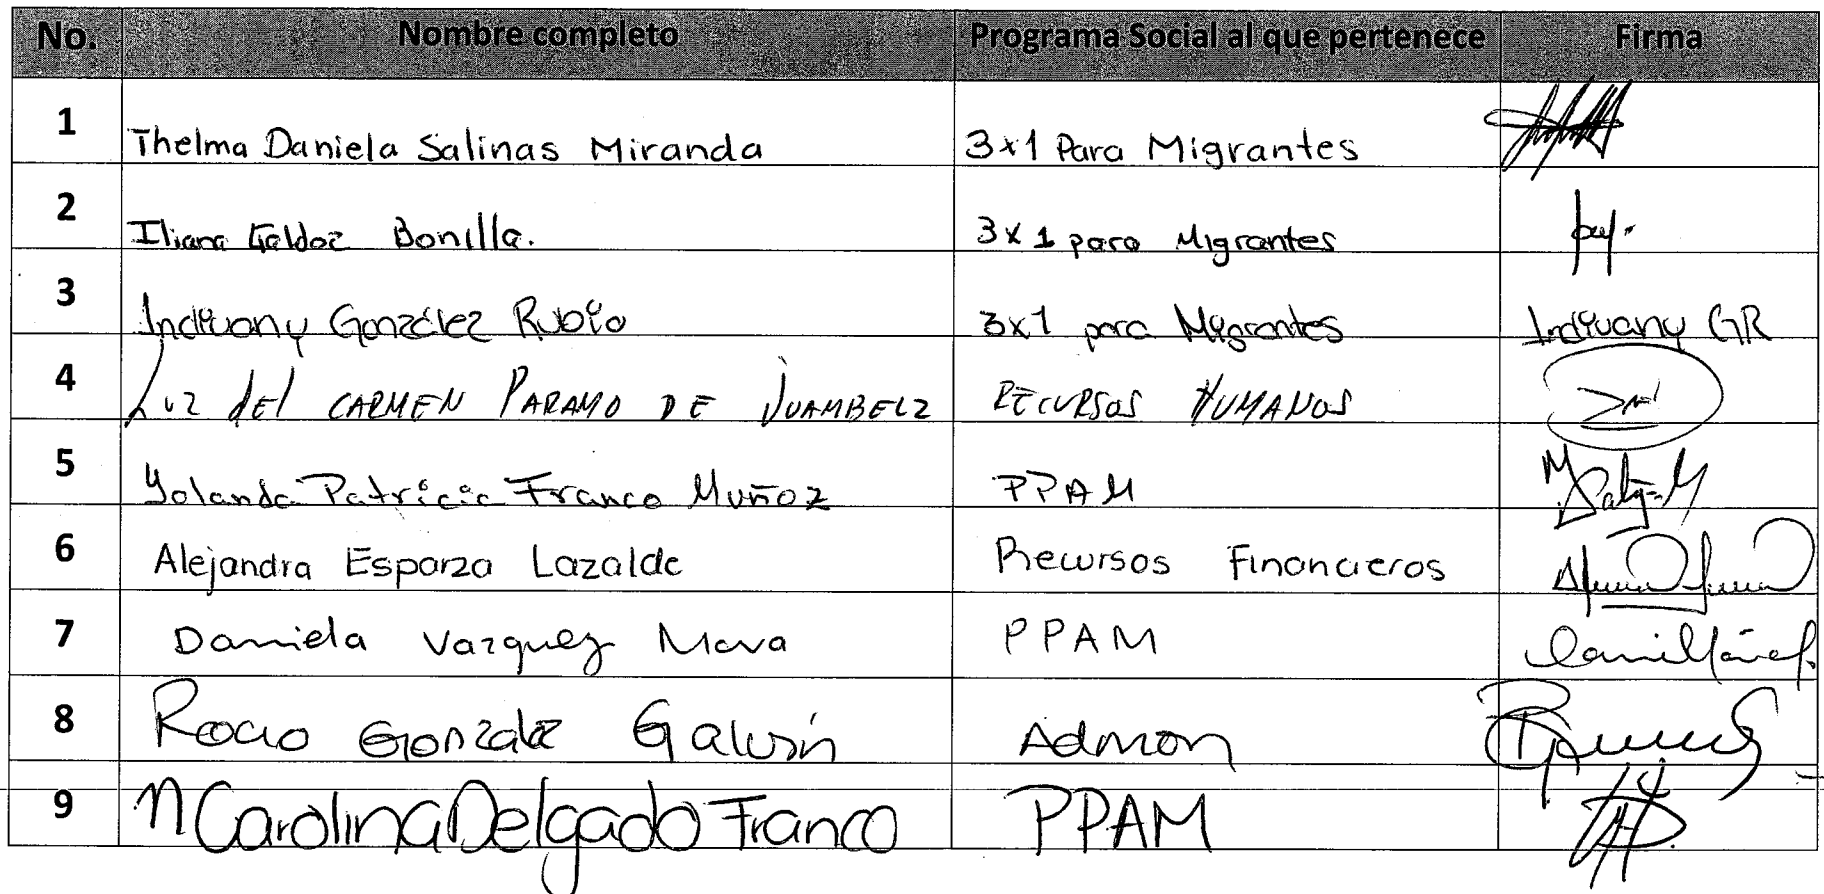 No. Nombre completo Programa Social al que pertenece Firma
1 Thelma Daniela Salinas Miranda 3x1 Para Migrantes
2 Iliana Galdoz Bonilla. 3x1 para Migrantes
3 Indivany González Rubio 3x1 para Migrantes Indivany GR
4 Luz del CARMEN PARAMO DE JUAMBELZ RECURSOS HUMANOS
5 Yolanda Patricia Franco Muñoz PPAM
6 Alejandra Esparza Lazalde Recursos Financieros
7 Daniela Vazquez Mava PPAM
8 Rocio Gonzalez Galván Admon
9 M Carolina Delgado Franco PPAM